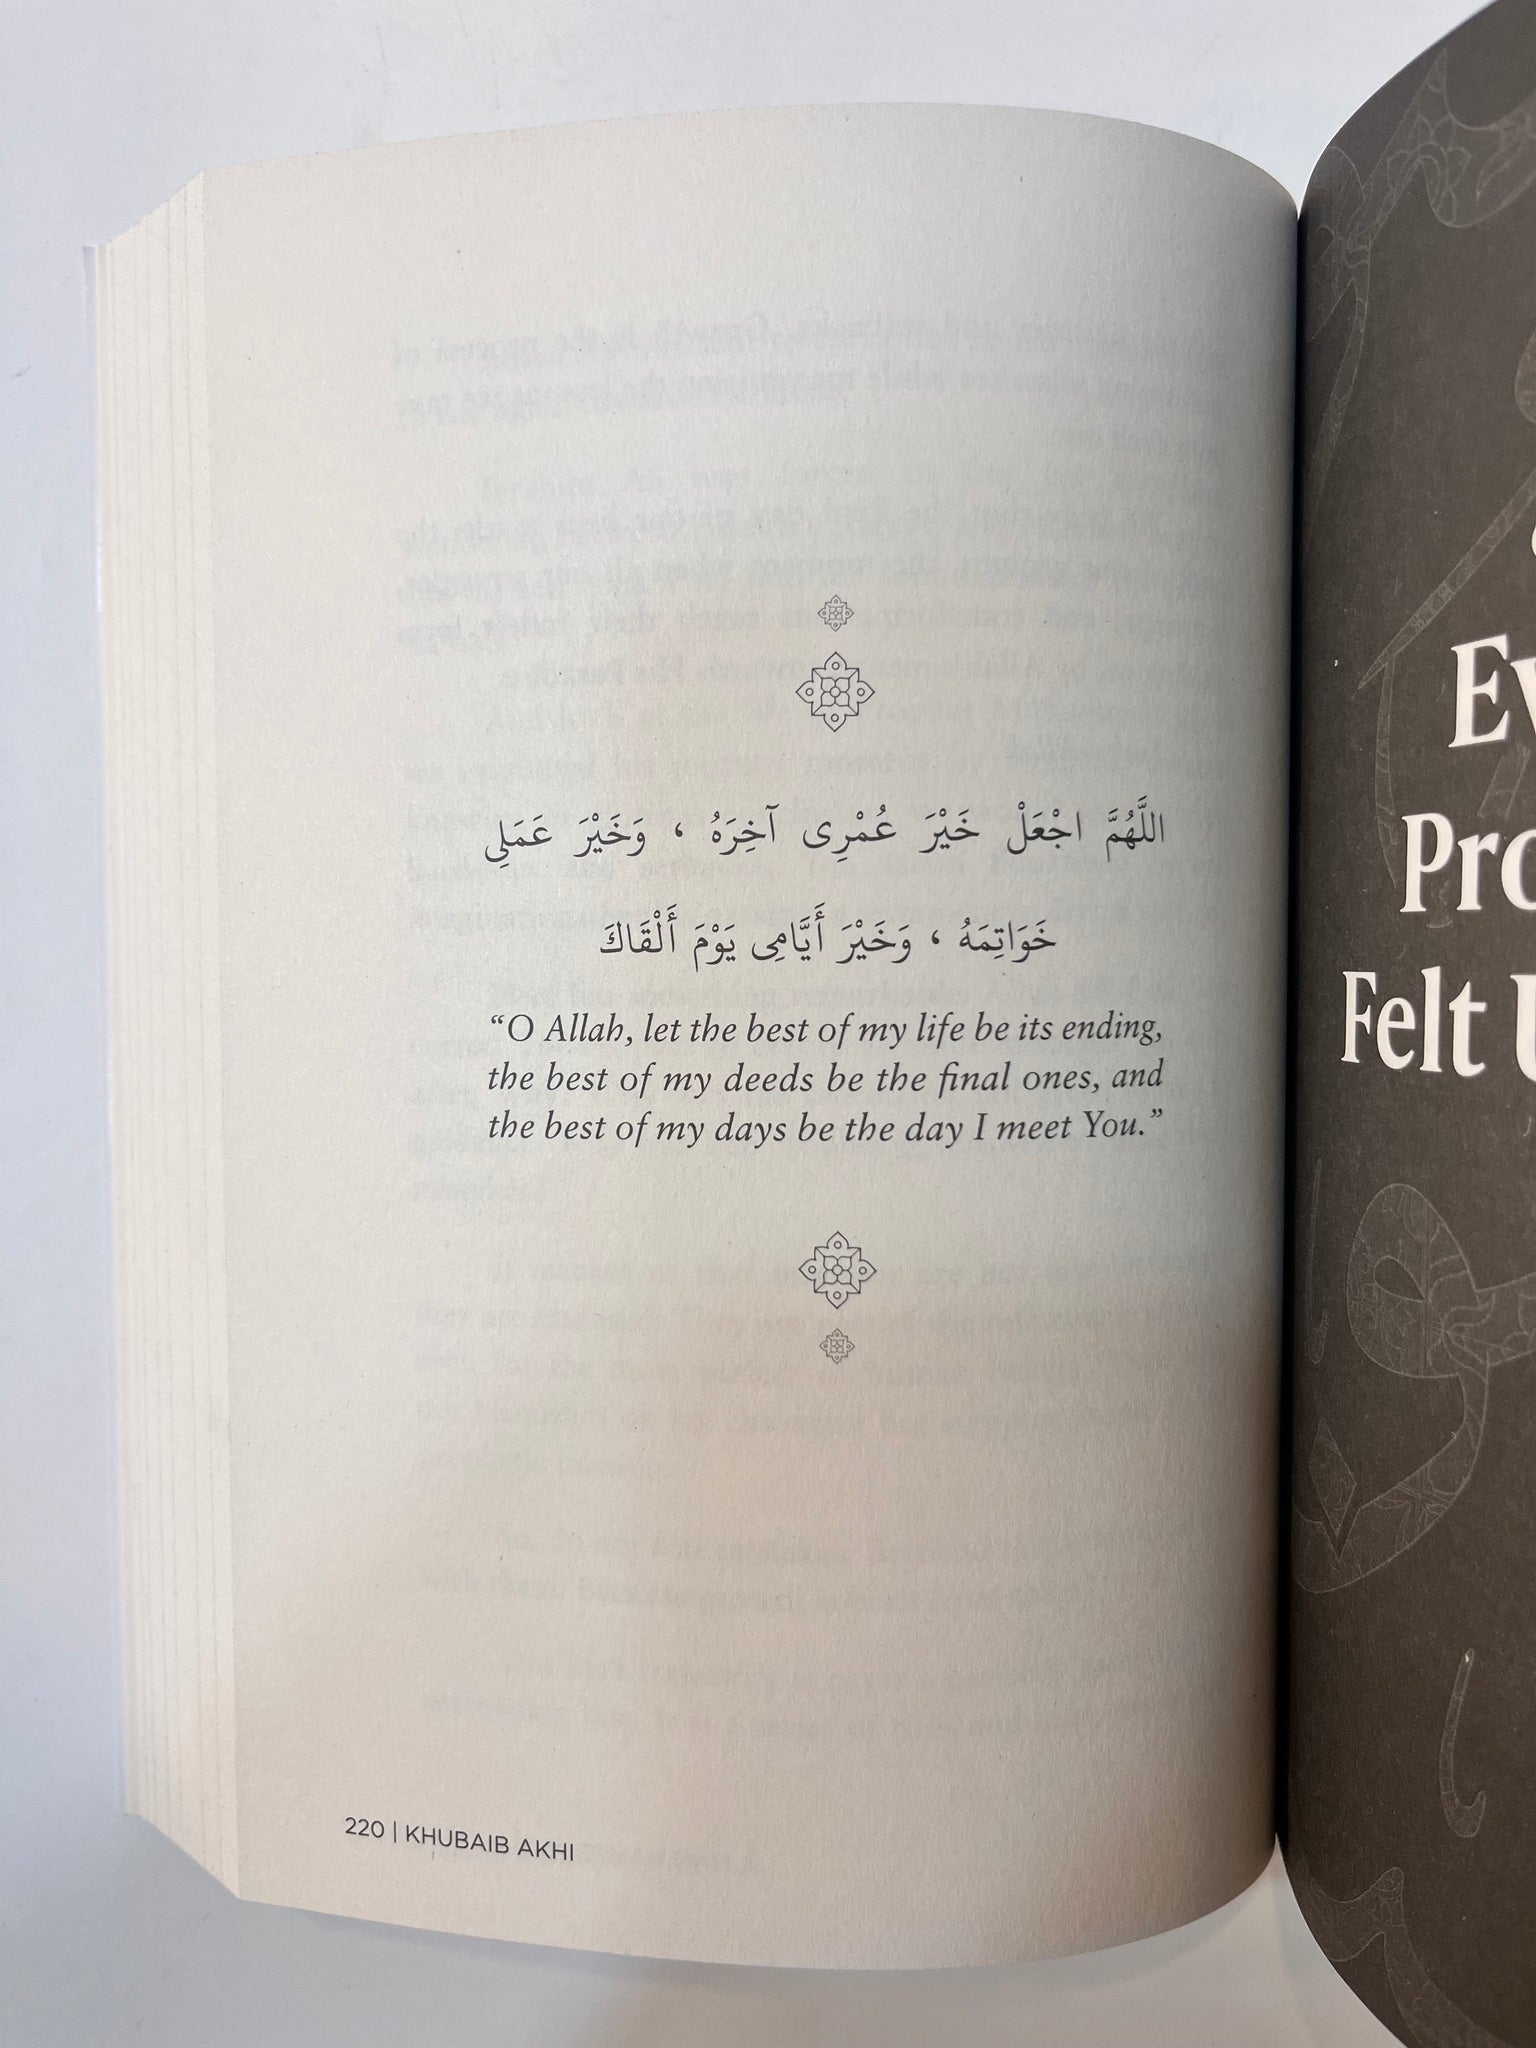 اللَّهُمَّ اجْعَلْ خَيْرَ عُمْرِى آخِرَهُ ، وَخَيْرَ عَمَلِى
خَوَاتِمَهُ ، وَخَيْرَ أَيَّامِى يَوْمَ أَلْقَاكَ
“O Allah, let the best of my life be its ending,
the best of my deeds be the final ones, and
the best of my days be the day I meet You.”
220 | KHUBAIB AKHI
Felt